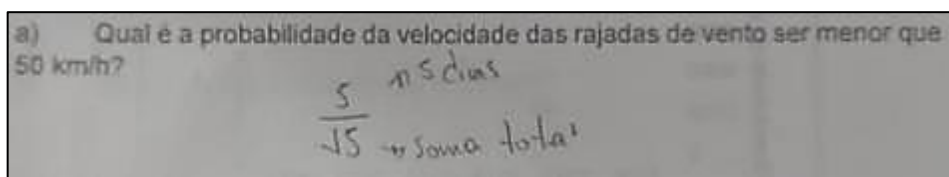 a) Qual é a probabilidade da velocidade das rajadas de vento ser menor que
50 km/h?
5 dias
5
15 → soma total